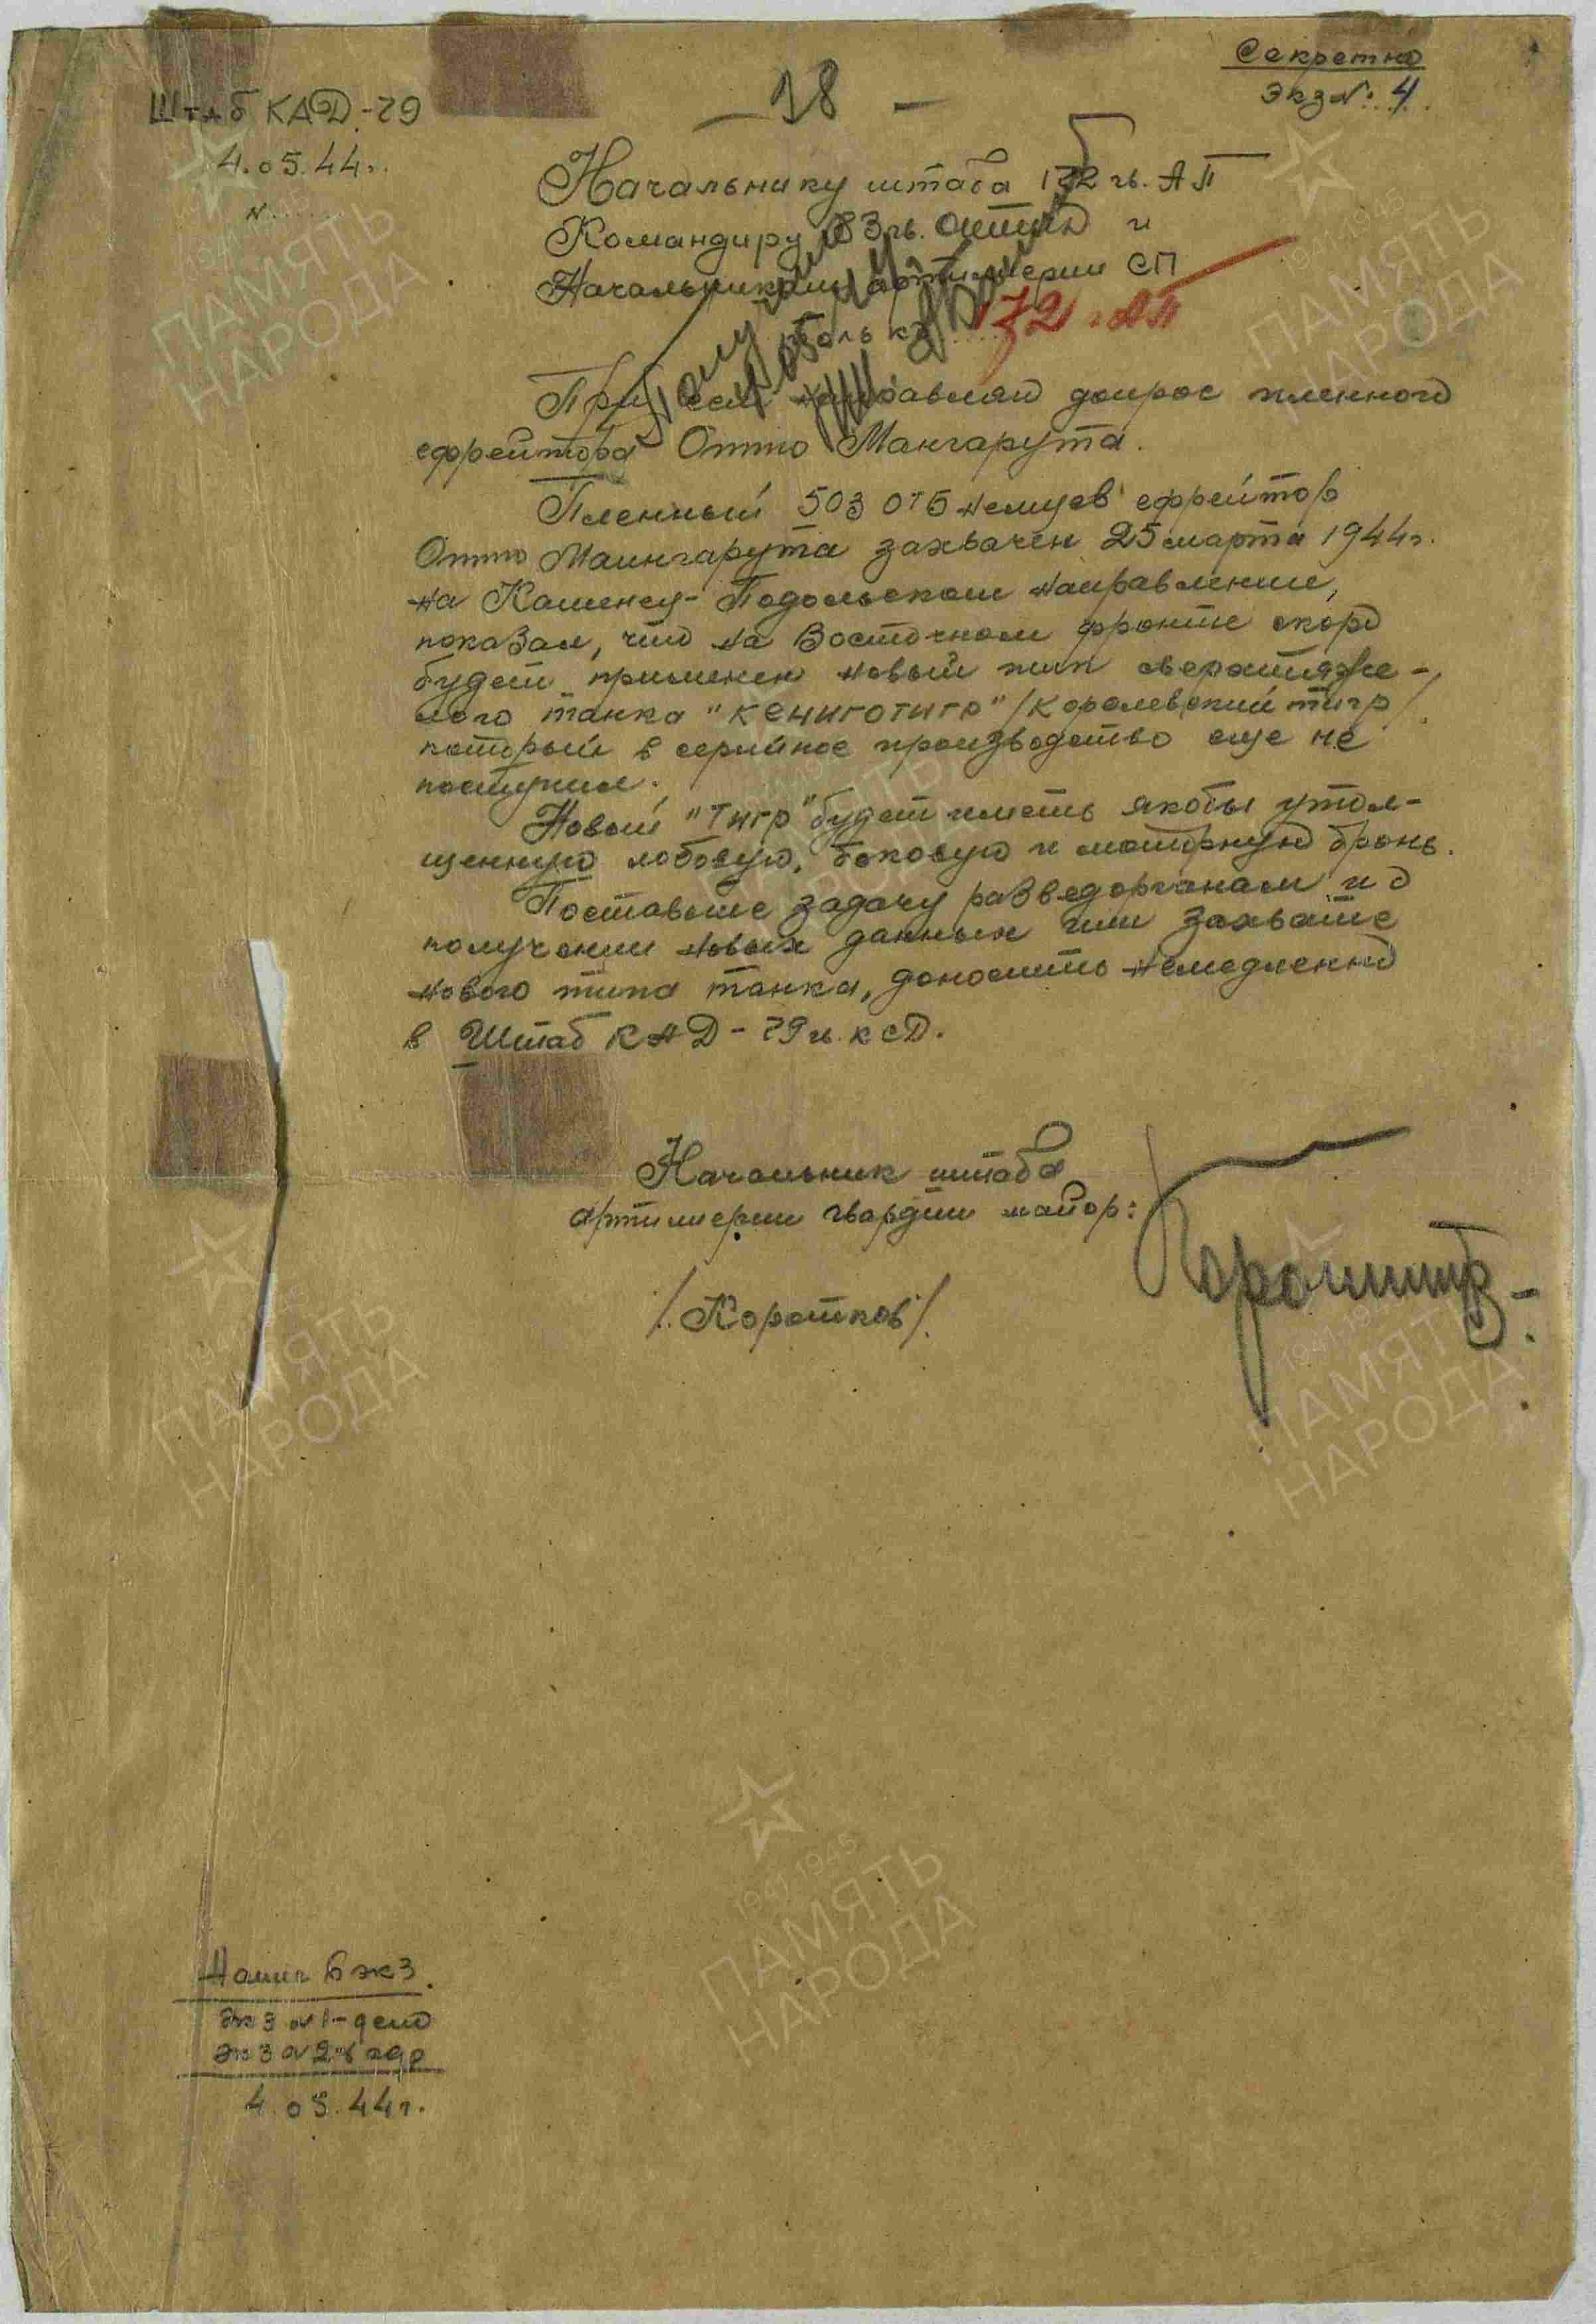 Секретно
Экз №: 4.
Штаб КАД-79
4.05.44г.
N......
— 18 —
Начальнику штаба 172 гв. АП
Командиру 83 гв. и
Начальникам артиллерии СП
только
172 г АП
При сем направляю допрос пленного
ефрейтора Отто Мангарута.
Пленный 503 ОТБ немцев ефрейтор
Отто Маингарута захвачен 25 марта 1944г.
на Каменец-Подольском направлении,
показал, что на Восточном фронте скоро
будет применен новый тип сверхтяже-
лого танка "КЕНИГОТИГР" /королевский тигр/.
который в серийное производство еще не
поступил.
Новый "Тигр" будет иметь якобы утол-
щенную лобовую, боковую и моторную бронь.
Поставьте задачу разведорганам и о
получении новых данных или захвате
нового типа танка, доносить немедленно
в Штаб КАД - 79 гв. КСД.
Начальник штаба
артиллерии гвардии майор:
/Коротков/.
5 экз.
экз № 1 - дело
экз № 2-5
4.05.44г.
ПАМЯТЬ
НАРОДА
1941 1945
ПАМЯТЬ
НАРОДА
ПАМЯТЬ
НАРОДА
ПАМЯТЬ
НАРОДА
1941 1945
ПАМЯТЬ
НАРОДА